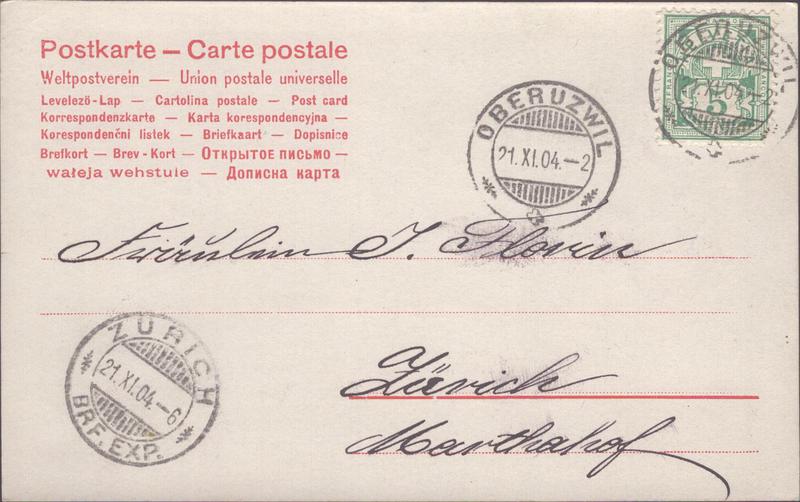 Postkarte — Carte postale
Weltpostverein — Union postale universelle
Levelezö-Lap — Cartolina postale — Post card
Korrespondenzkarte — Karta korespondencyjna —
Korespondenční lístek — Briefkaart — Dopisnice
Brefkort — Brev-Kort — Открытое письмо —
wałeja wehstule — Дописна карта
OBERUZWIL
21.XI.04.–2
OBERUZWIL
21.XI.04.–2
5
Fräulein J. Florin
ZÜRICH
21.XI.04.–6
BRF. EXP.
Zürich
Marthahof